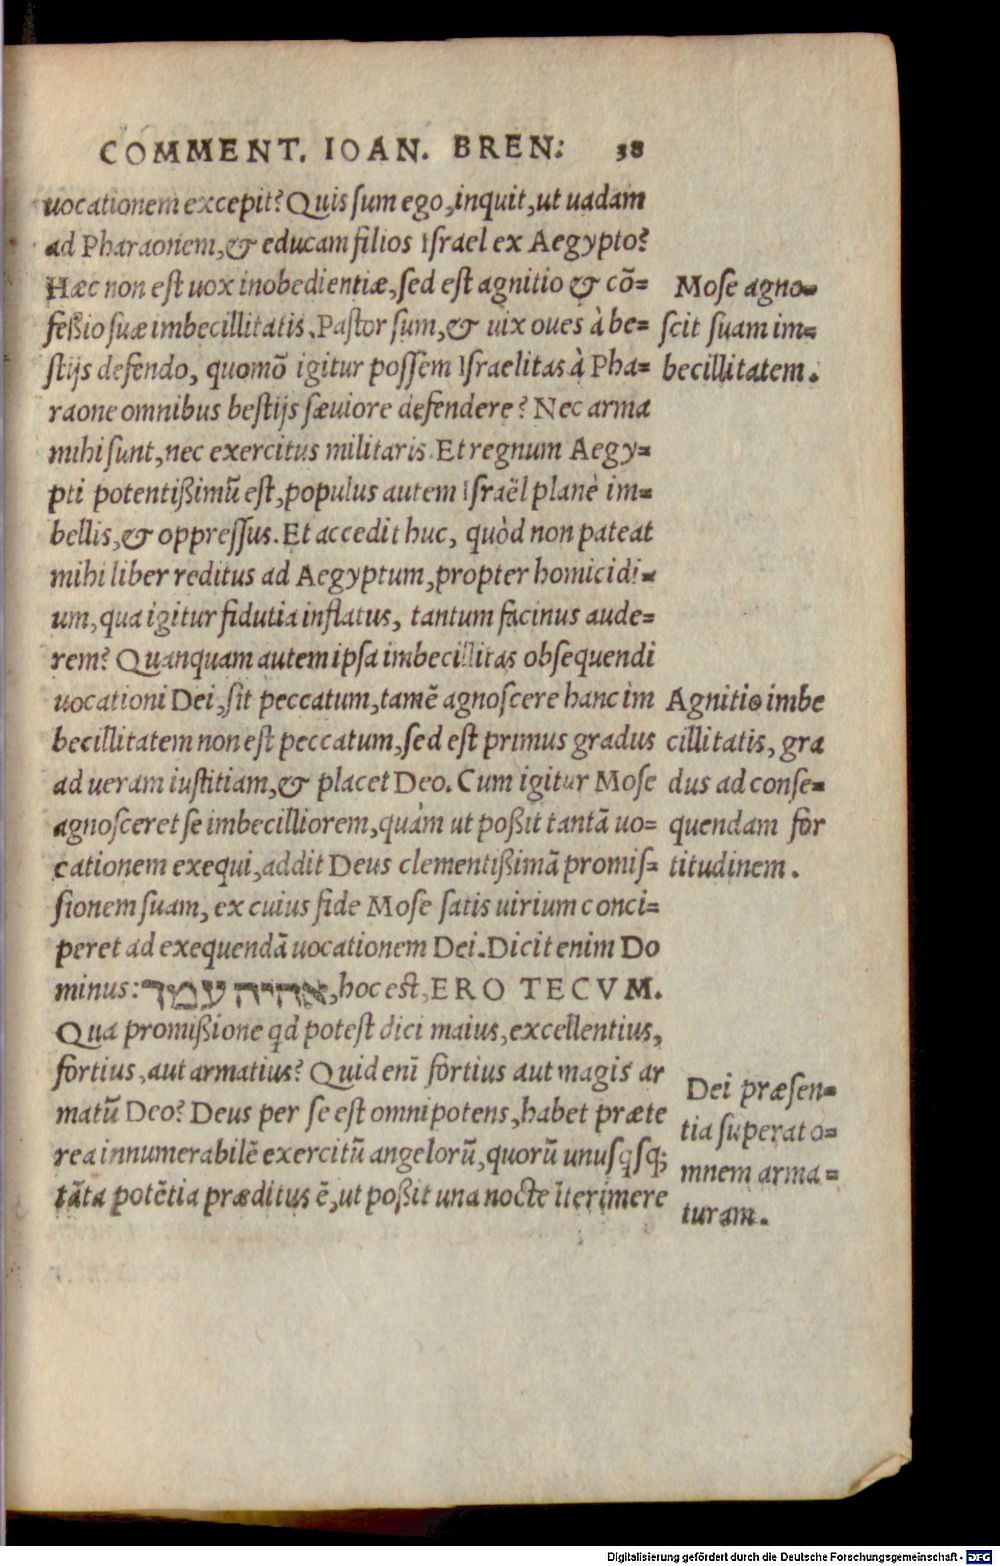 COMMENT. IOAN. BREN: 38
uocationem excepit? Quis sum ego, inquit, ut uadam
ad Pharaonem, & educam filios Israel ex Aegypto?
Hæc non est uox inobedientiæ, sed est agnitio & cõ=
feßio suæ imbecillitatis. Pastor sum, & uix oues à be=
stijs defendo, quomõ igitur possem Israelitas à Pha=
raone omnibus bestijs sæuiore defendere? Nec arma
mihi sunt, nec exercitus militaris. Et regnum Aegy=
pti potentißimũ est, populus autem Israël planè im=
bellis, & oppressus. Et accedit huc, quòd non pateat
mihi liber reditus ad Aegyptum, propter homicidi=
um, qua igitur fidutia inflatus, tantum facinus aude=
rem? Quanquam autem ipsa imbecillitas obsequendi
uocationi Dei, sit peccatum, tamẽ agnoscere hanc im
becillitatem non est peccatum, sed est primus gradus
ad ueram iustitiam, & placet Deo. Cum igitur Mose
agnosceret se imbecilliorem, quàm ut poßit tantã uo=
cationem exequi, addit Deus clementißimã promis=
sionem suam, ex cuius fide Mose satis uirium conci=
peret ad exequendã uocationem Dei. Dicit enim Do
minus: אהיה עמך, hoc est, ERO TECVM.
Qua promißione qd potest dici maius, excellentius,
fortius, aut armatius? Quid enĩ fortius aut magis ar
matũ Deo? Deus per se est omnipotens, habet præte
rea innumerabilẽ exercitũ angelorũ, quorũ unusqsq;
tãta potẽtia præditus ẽ, ut poßit una nocte ĩterimere
Mose agno=
scit suam im=
becillitatem.
Agnitio imbe
cillitatis, gra
dus ad conse=
quendam for
titudinem.
Dei præsen=
tia superat o=
mnem arma=
turam.
Digitalisierung gefördert durch die Deutsche Forschungsgemeinschaft - DFG